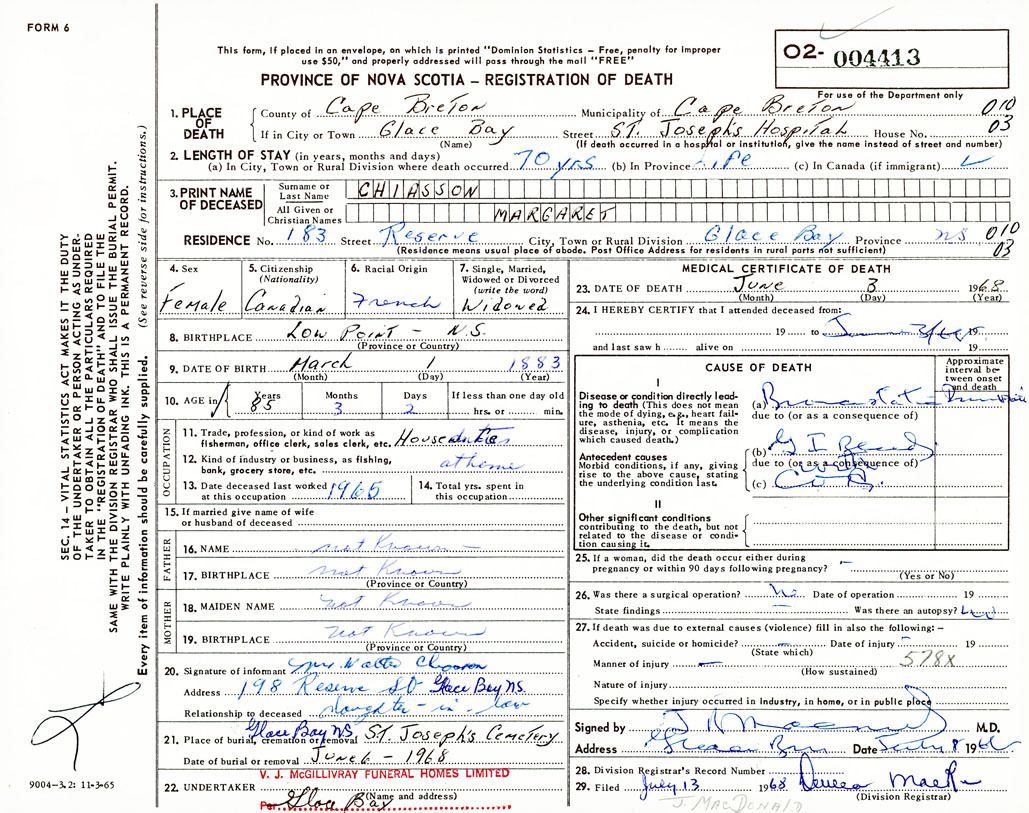 FORM 6
This form, if placed in an envelope, on which is printed "Dominion Statistics – Free, penalty for improper
use $50," and properly addressed will pass through the mail "FREE"
PROVINCE OF NOVA SCOTIA – REGISTRATION OF DEATH
O2- 004413
For use of the Department only
1. PLACE OF DEATH
County of Cape Breton Municipality of Cape Breton 010
If in City or Town Glace Bay Street St. Joseph's Hospital House No. 03
(Name) (If death occurred in a hospital or institution, give the name instead of street and number)
2. LENGTH OF STAY (in years, months and days)
(a) In City, Town or Rural Division where death occurred 70 yrs (b) In Province Life (c) In Canada (if immigrant)
3. PRINT NAME OF DECEASED
Surname or Last Name CHIASSON
All Given or Christian Names MARGARET
RESIDENCE No. 183 Street Reserve City, Town or Rural Division Glace Bay Province NS 010
(Residence means usual place of abode. Post Office Address for residents in rural parts not sufficient) 03
4. Sex Female
5. Citizenship (Nationality) Canadian
6. Racial Origin French
7. Single, Married, Widowed or Divorced (write the word) Widowed
8. BIRTHPLACE Low Point – N.S.
(Province or Country)
9. DATE OF BIRTH March 1 1883
(Month) (Day) (Year)
10. AGE in Years 85 Months 3 Days 2 If less than one day old hrs. or min.
OCCUPATION
11. Trade, profession, or kind of work as fisherman, office clerk, sales clerk, etc. House duties
12. Kind of industry or business, as fishing, bank, grocery store, etc. at home
13. Date deceased last worked at this occupation 1965
14. Total yrs. spent in this occupation
15. If married give name of wife or husband of deceased
FATHER
16. NAME not Known –
17. BIRTHPLACE not Known
(Province or Country)
MOTHER
18. MAIDEN NAME not Known
19. BIRTHPLACE not Known
(Province or Country)
20. Signature of informant Mrs. Walter Chiasson
Address 198 Reserve St Glace Bay NS.
Relationship to deceased daughter-in-law
21. Place of burial, cremation or removal Glace Bay NS St. Joseph's Cemetery
Date of burial or removal June 6 – 1968
22. UNDERTAKER V. J. McGILLIVRAY FUNERAL HOMES LIMITED
(Name and address)
Per Glace Bay
MEDICAL CERTIFICATE OF DEATH
23. DATE OF DEATH June 3 1968
(Month) (Day) (Year)
24. I HEREBY CERTIFY that I attended deceased from:
19 to 19
and last saw h alive on 19
CAUSE OF DEATH
Approximate interval between onset and death
I
Disease or condition directly leading to death (This does not mean the mode of dying, e.g., heart failure, asthenia, etc. It means the disease, injury, or complication which caused death.)
(a)
due to (or as a consequence of)
Antecedent causes
Morbid conditions, if any, giving rise to the above cause, stating the underlying condition last.
(b) G I Bleed
due to (or as a consequence of)
(c)
II
Other significant conditions
contributing to the death, but not related to the disease or condition causing it.
25. If a woman, did the death occur either during
pregnancy or within 90 days following pregnancy? –
(Yes or No)
26. Was there a surgical operation? No Date of operation 19
State findings – Was there an autopsy?
27. If death was due to external causes (violence) fill in also the following: –
Accident, suicide or homicide? – Date of injury – 19
(State which) 578X
Manner of injury –
(How sustained)
Nature of injury
Specify whether injury occurred in industry, in home, or in public place
Signed by M.D.
Address Glace Bay Date July 8 196
28. Division Registrar's Record Number
29. Filed July 13 1968
(Division Registrar)
J. MACDONALD
SEC. 14 – VITAL STATISTICS ACT MAKES IT THE DUTY
OF THE UNDERTAKER OR PERSON ACTING AS UNDER-
TAKER TO OBTAIN ALL THE PARTICULARS REQUIRED
IN THE "REGISTRATION OF DEATH" AND TO FILE THE
SAME WITH THE DIVISION REGISTRAR WHO SHALL ISSUE THE BURIAL PERMIT.
WRITE PLAINLY WITH UNFADING INK. THIS IS A PERMANENT RECORD.
Every item of information should be carefully supplied. (See reverse side for instructions.)
9004–3.2: 11-3-65